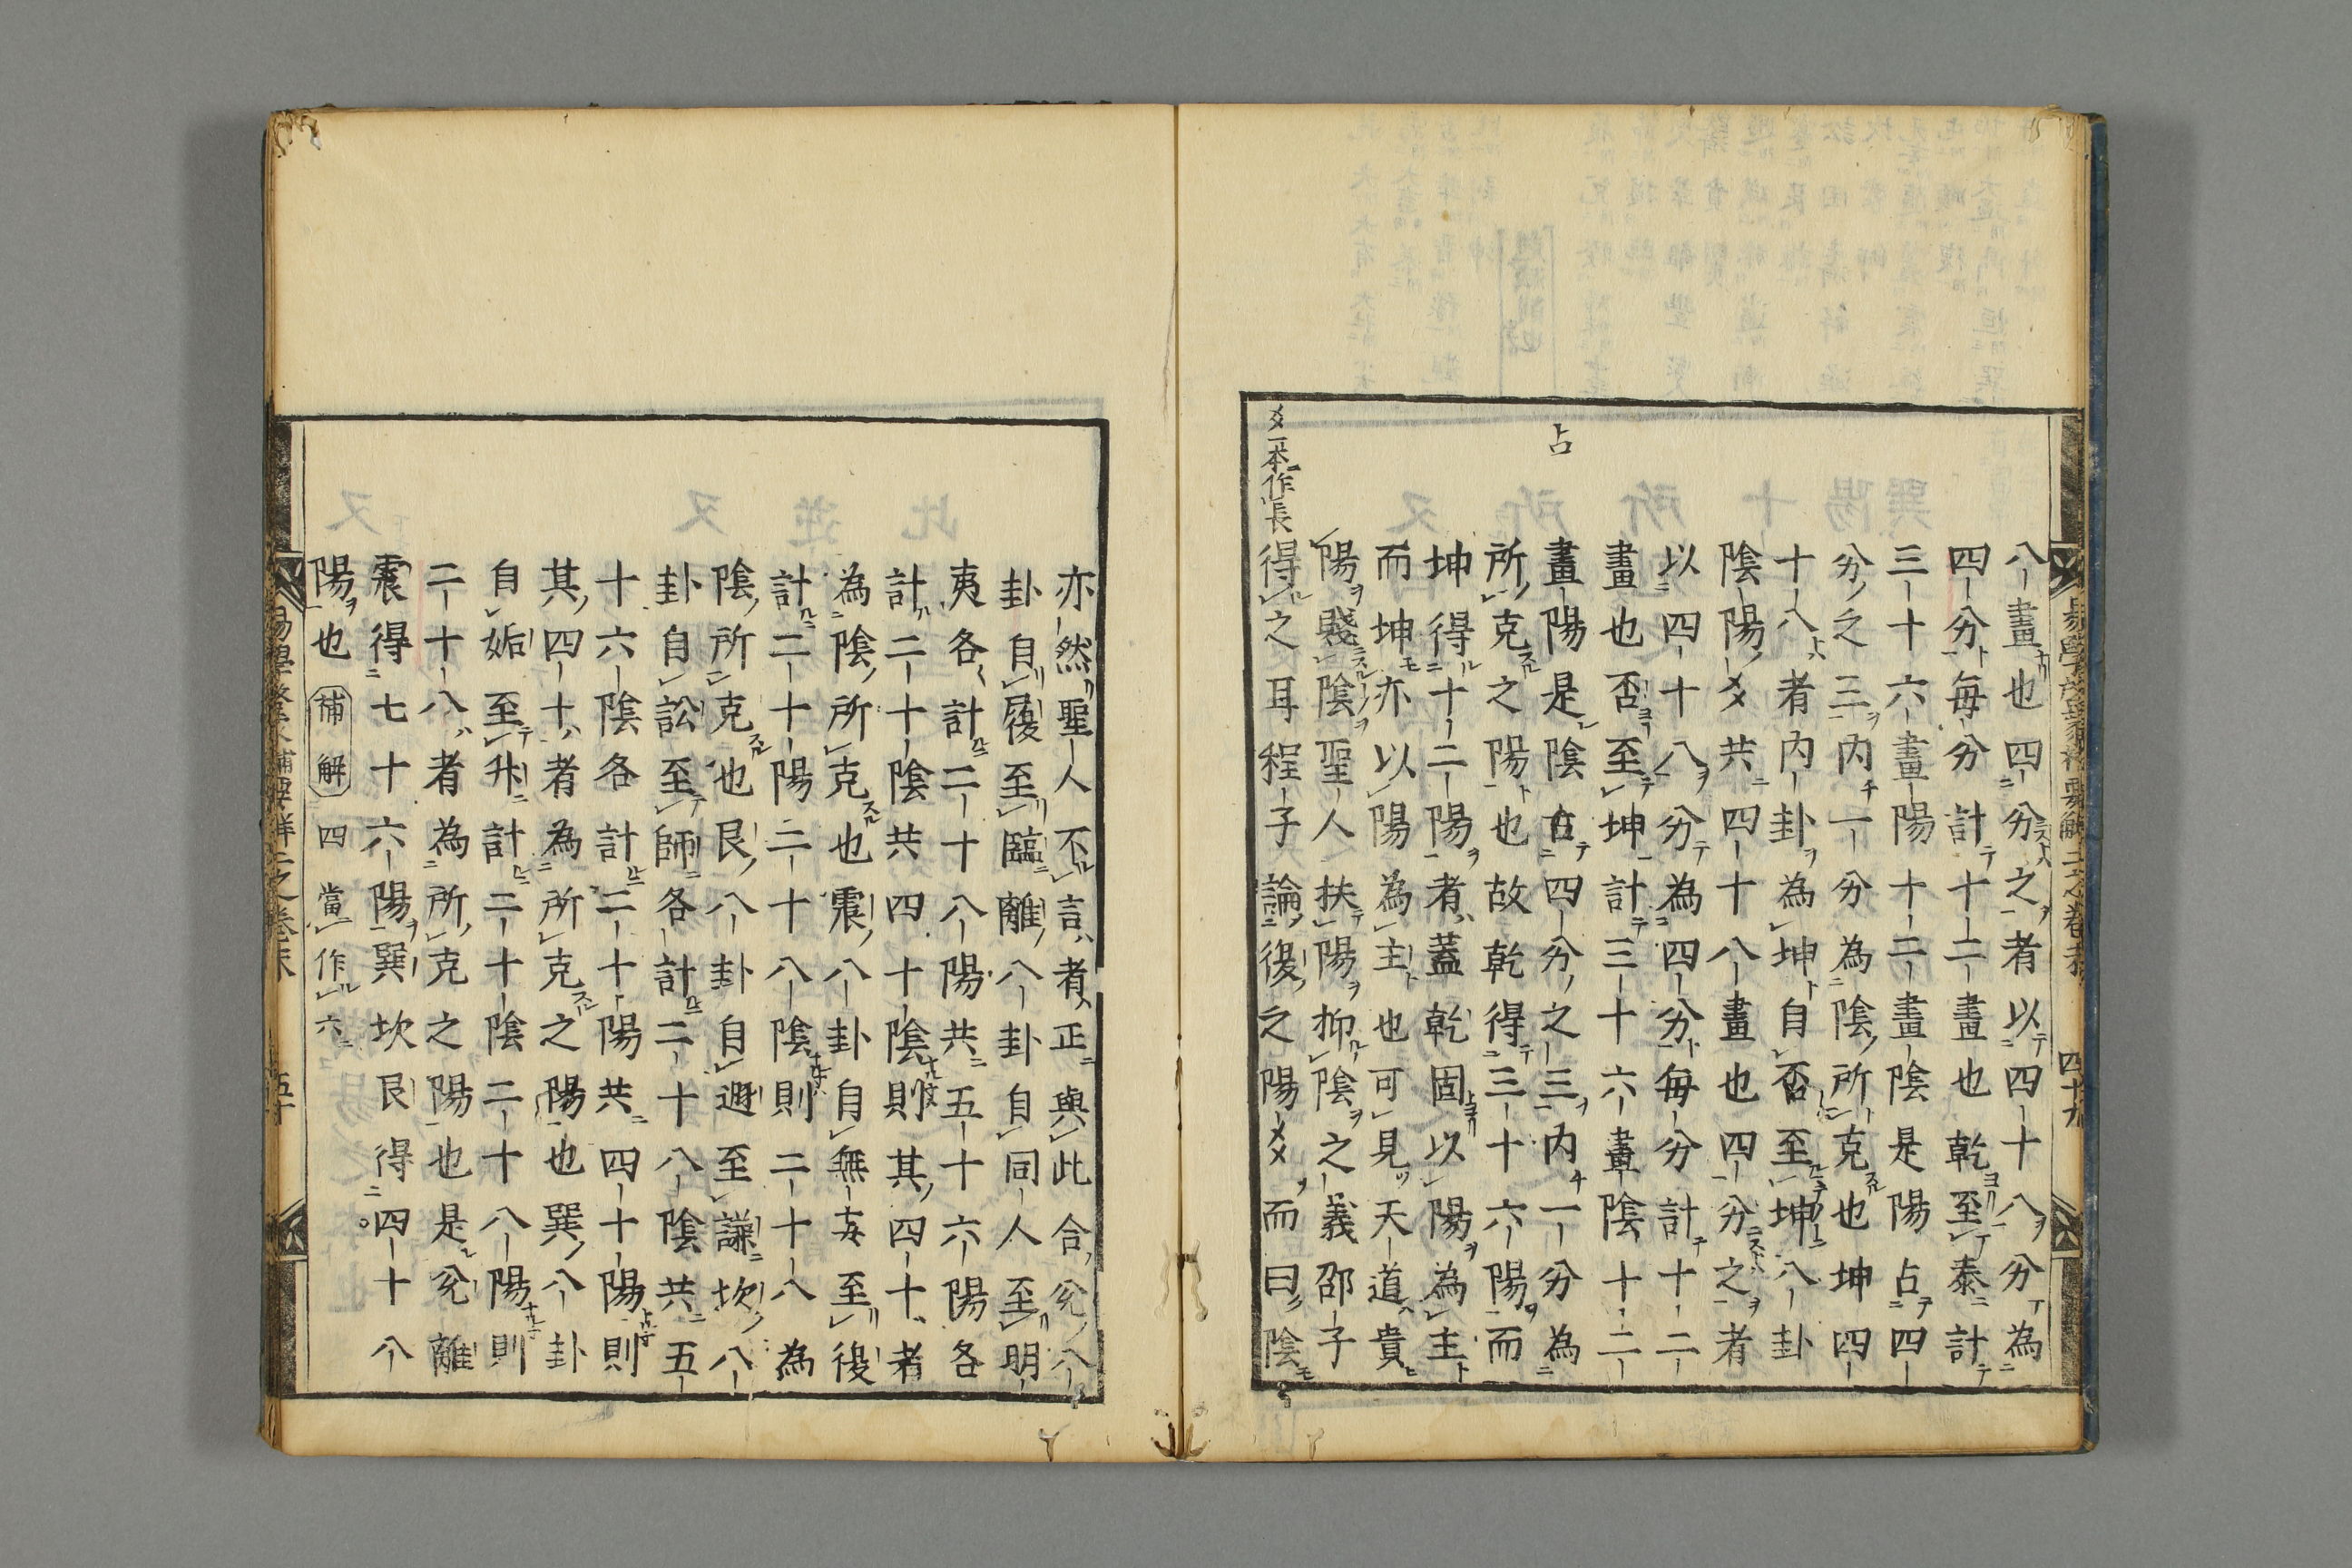 八畫也四分之者以四十八分為
四分毎分計十二畫也乾至泰計
三十六畫陽十二畫陰是陽占四
分之三內一分為陰所克也坤四
十八者內卦為坤自否至坤八卦
陰陽〆共四十八畫也四分之者
以四十八分為四分毎分計十二
畫也否至坤計三十六畫陰十二
畫陽是陰占四分之三內一分為
所克之陽也故乾得三十六陽而
坤得十二陽者蓋乾固以陽為主
而坤亦以陽為主也可見天道貴
陽賤陰聖人扶陽抑陰之義邵子
得之耳程子論復之陽〆而曰陰
占
〆一本作長
四十九
亦然聖人不言者正與此合兊八
卦自履至臨離八卦自同人至明
夷各計二十八陽共五十六陽各
計二十陰共四十陰則其四十者
為陰所克也震八卦自無妄至復
計二十陽二十八陰則二十八為
陰所克也艮八卦自遯至謙坎八
卦自訟至師各計二十八陰共五
十六陰各計二十陽共四十陽則
其四十者為所克之陽也巽八卦
自姤至升計二十陰二十八陽則
二十八者為所克之陽也是兊離
震得七十六陽巽坎艮得四十八
陽也 補解 四當作六
五十